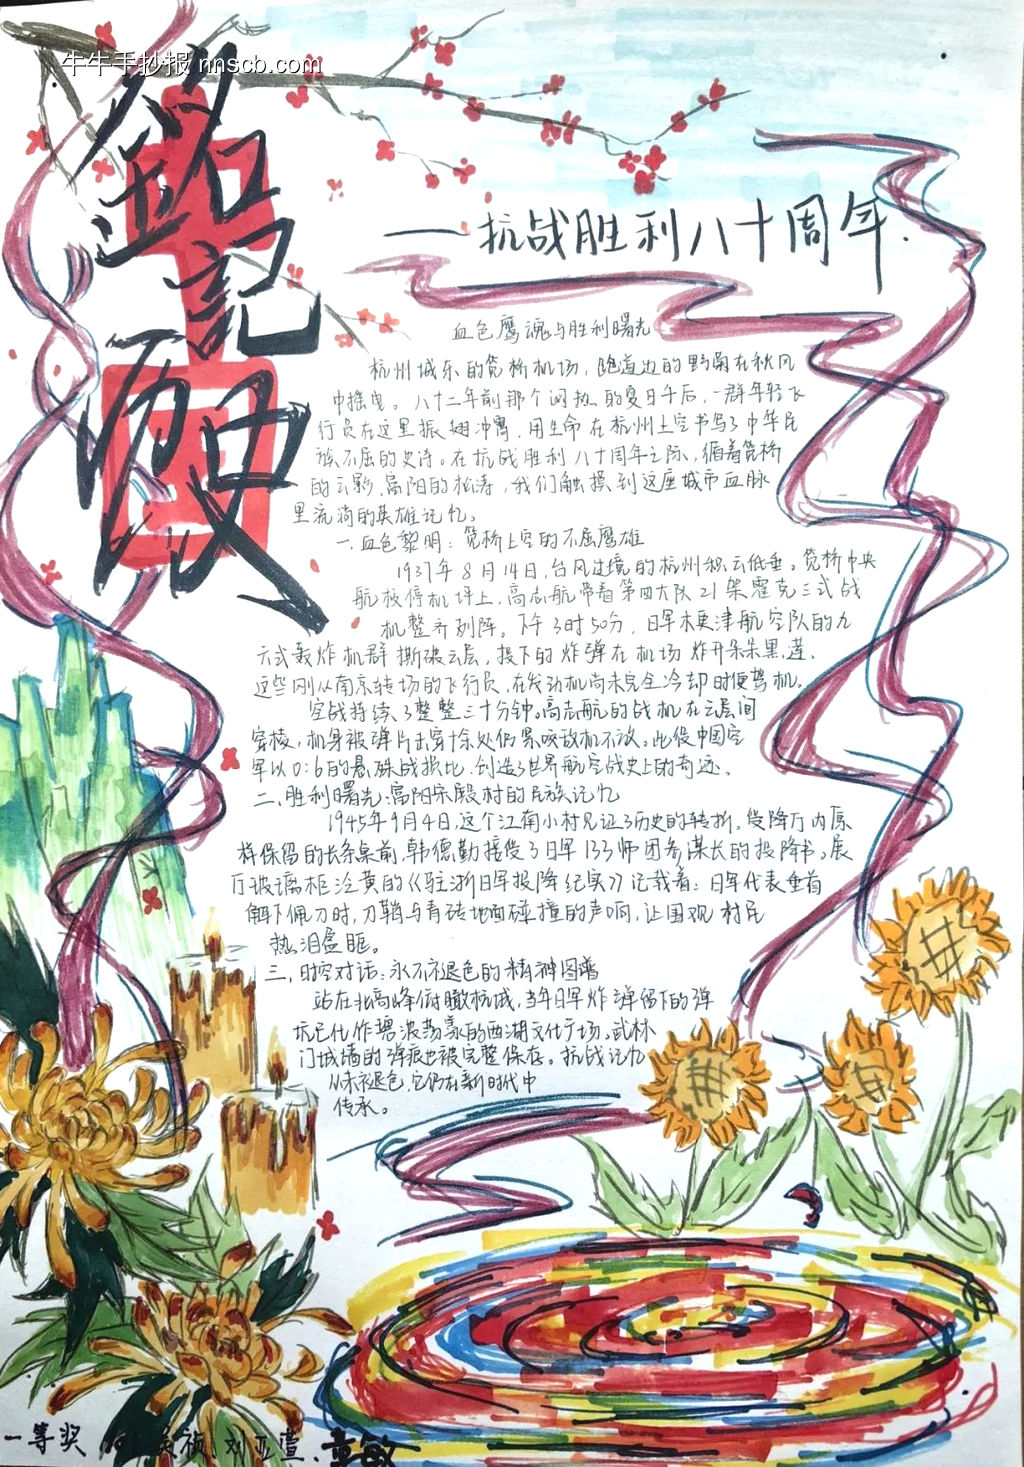 牛牛手抄报 nnscb.com
铭记历史
——抗战胜利八十周年.
血色鹰魂与胜利曙光
杭州城东的笕桥机场，跑道边的野菊在秋风
中摇曳。八十二年前那个闷热的夏日午后，一群年轻飞
行员在这里振翅冲霄，用生命在杭州上空书写了中华民
族不屈的史诗。在抗战胜利八十周年之际，循着笕桥
的云影，富阳的松涛，我们触摸到这座城市血脉
里流淌的英雄记忆。
一.血色黎明：笕桥上空的不屈鹰雄
1937年8月14日，台风过境的杭州积云低垂。笕桥中央
航校停机坪上，高志航带着第四大队21架霍克三式战
机整齐列阵。下午3时50分，日军木更津航空队的九
六式轰炸机群撕破云层，投下的炸弹在机场炸开朵朵黑莲，
这些刚从南京转场的飞行员，在发动机尚未完全冷却时便驾机。
空战持续了整整三十分钟。高志航的战机在云层间
穿梭，机身被弹片击穿十余处仍紧咬敌机不放。此役中国空
军以0:6的悬殊战损比，创造了世界航空战史上的奇迹。
二.胜利曙光：富阳宋殿村的民族记忆
1945年9月4日，这个江南小村见证了历史的转折。受降厅内原
样保留的长条桌前，韩德勤接受了日军133师团参谋长的投降书。展
厅玻璃柜泛黄的《驻浙日军投降纪实》记载着：日军代表垂首
解下佩刀时，刀鞘与青砖地面碰撞的声响，让围观村民
热泪盈眶。
三.时空对话：永不褪色的精神图谱
站在北高峰俯瞰杭城，当年日军炸弹留下的弹
坑已化作碧波荡漾的西湖文化广场。武林
门城墙的弹痕也被完整保存。抗战记忆
从未褪色，它仍在新时代中
传承。
一等奖 刘亚萱、童敏